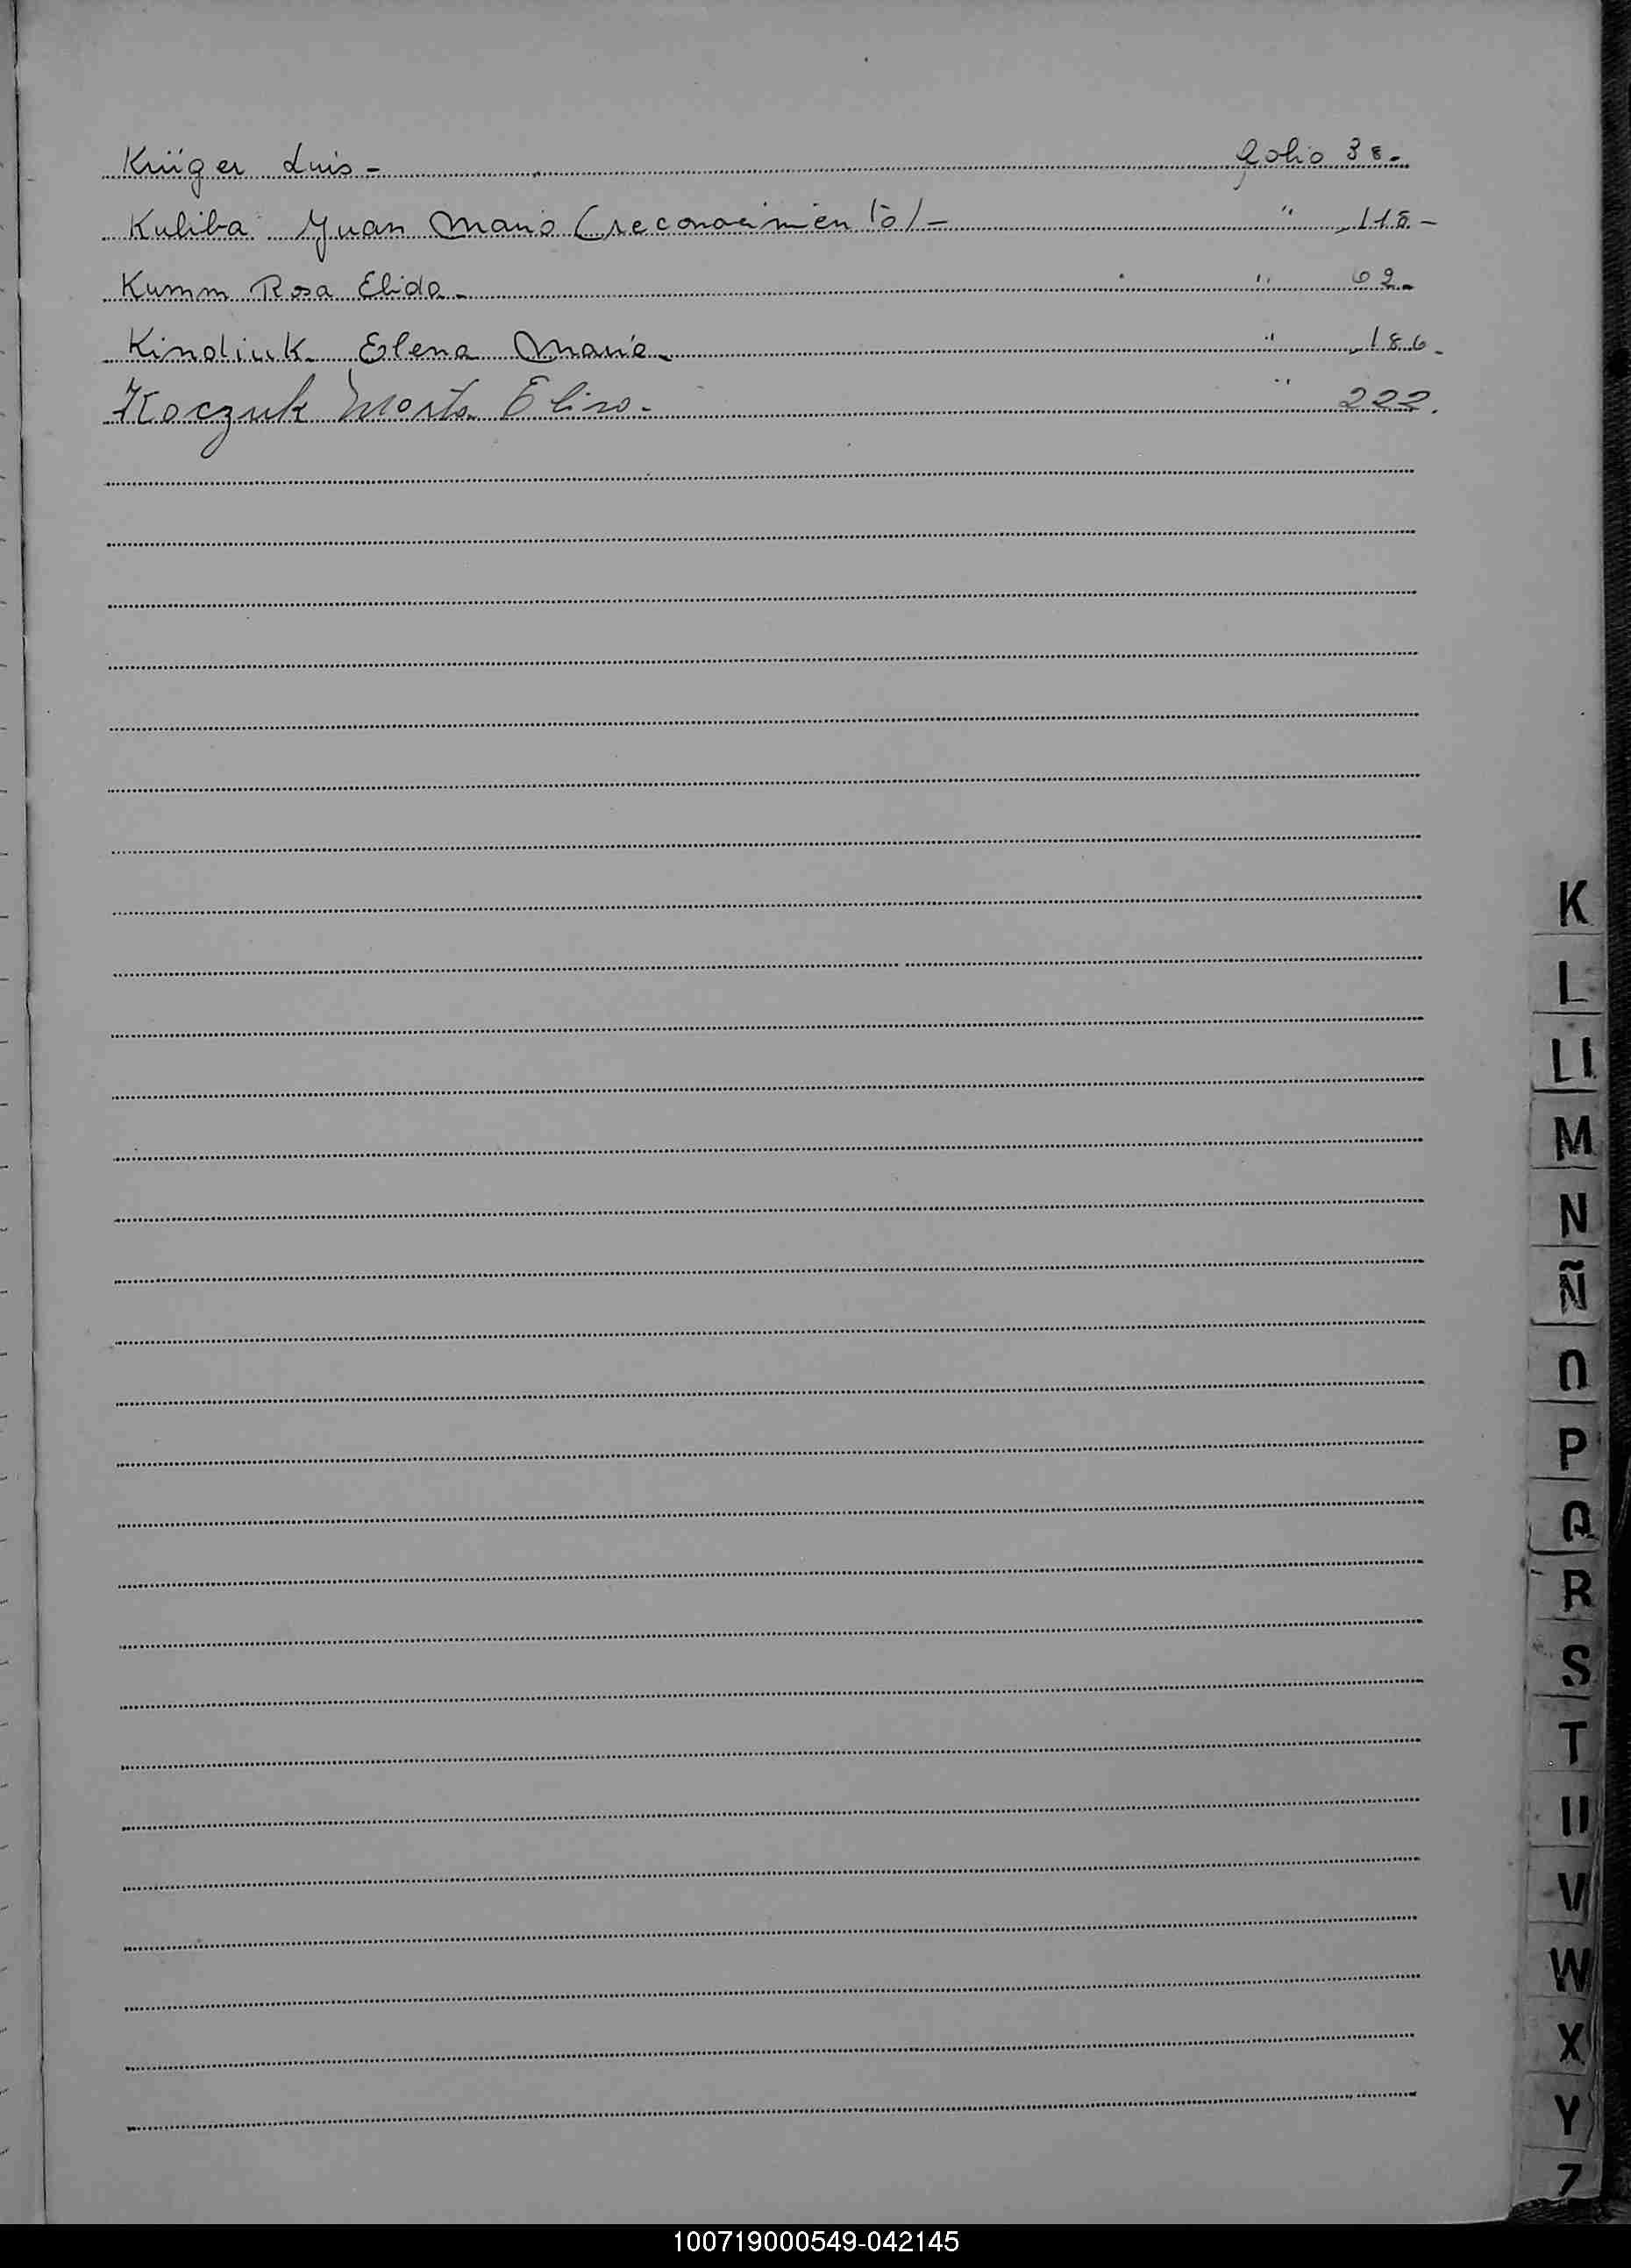 Krüger Luis - folio 38.-
Kuliba Juan Mario (reconocimiento) - " 118 -
Kumm Rosa Elida - " 62.-
Kindiuk Elena Maria - " 186.
Koczuk Marta Elisa. " 222.
K
L
Ll
M
N
Ñ
O
P
Q
R
S
T
U
V
W
X
Y
Z
100719000549-042145